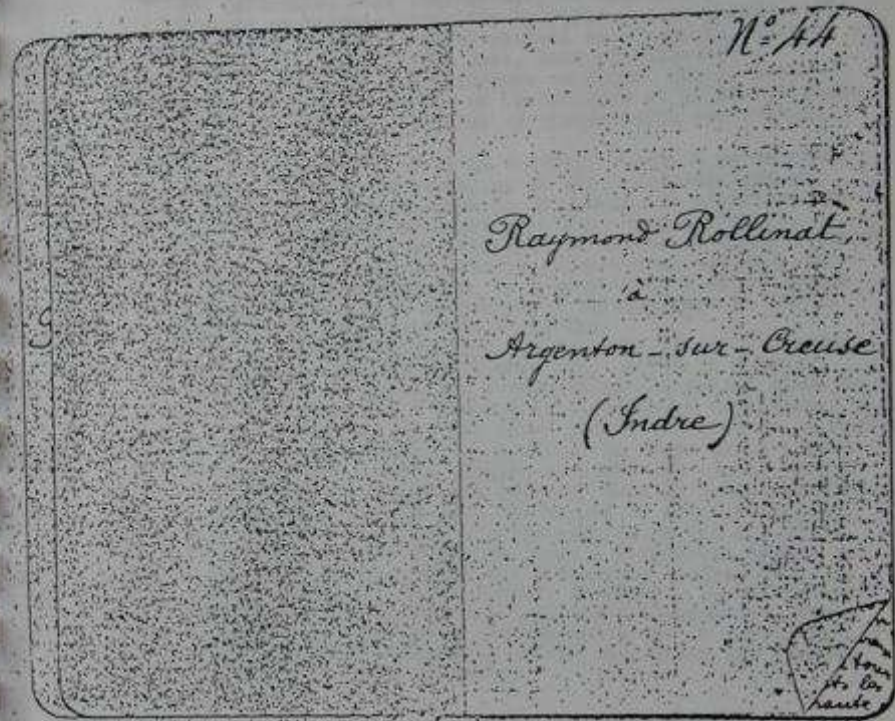 N° 44
Raymond Rollinat,
à
Argenton-sur-Creuse
(Indre)
les
haute